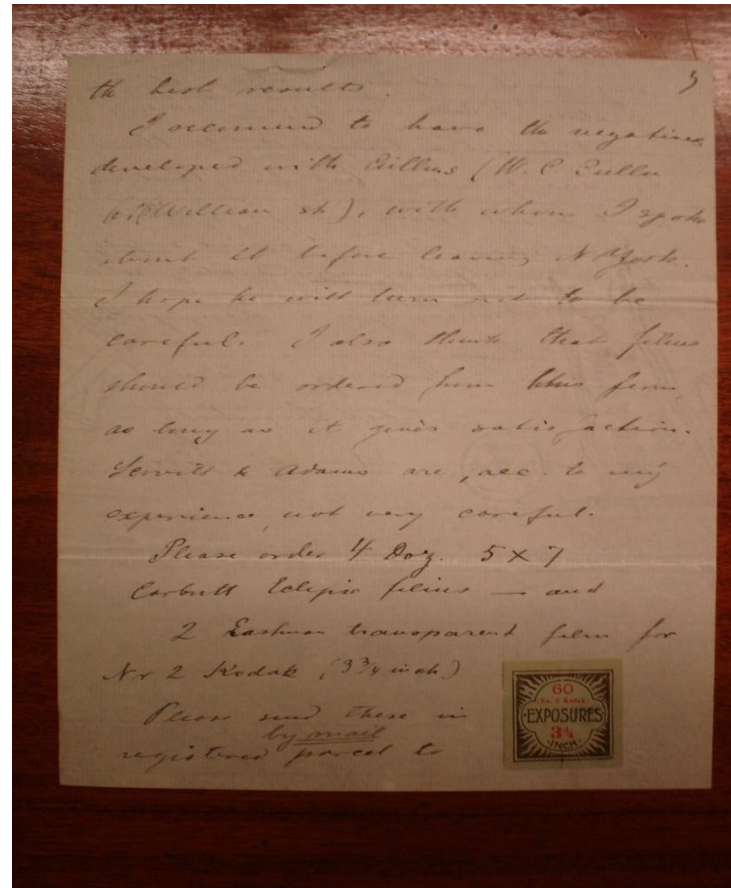 the best results.
5
I recommend to have the negatives
developed with Cullens (W. C Cullen
61 William st), with whom I spoke
about it before leaving N York.
I hope he will turn out to be
careful. I also think that films
should be ordered from this firm,
as long as it gives satisfaction.
& Adams are, acc. to my
experience, not very careful.
Please order 4 Doz. 5 X 7
Carbutt Eclipse films — and
2 Eastman transparent film for
Nr 2 Kodak (3 3/4 inch)
Please send these in
by mail
registered parcel to
60
No. 2 Kodak
EXPOSURES
3½
INCH